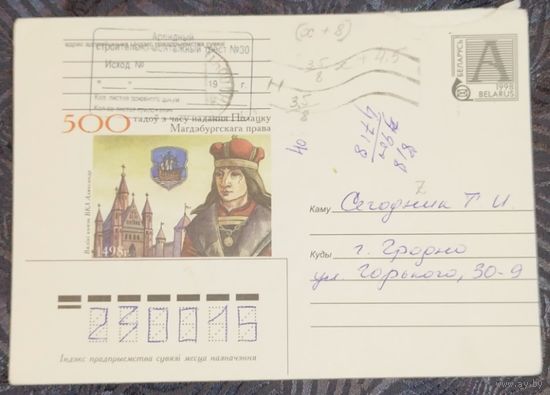 Арендный
строительно-монтажный трест №30
Исход №
"   "   19   г.
(x + 8)
35/8 x + 4,5
35/8
40
БЕЛАРУСЬ
A
1998
BELARUS
500 гадоў з часу надання Полацку
Магдабургскага права
Вялікі князь ВКЛ Аляксандр
1498 г.
Каму Сегодник Т. И.
Куды г. Гродно
ул. Горького, 30-9
230015
Індэкс прадпрыемства сувязі месца назначэння
www.ay.by